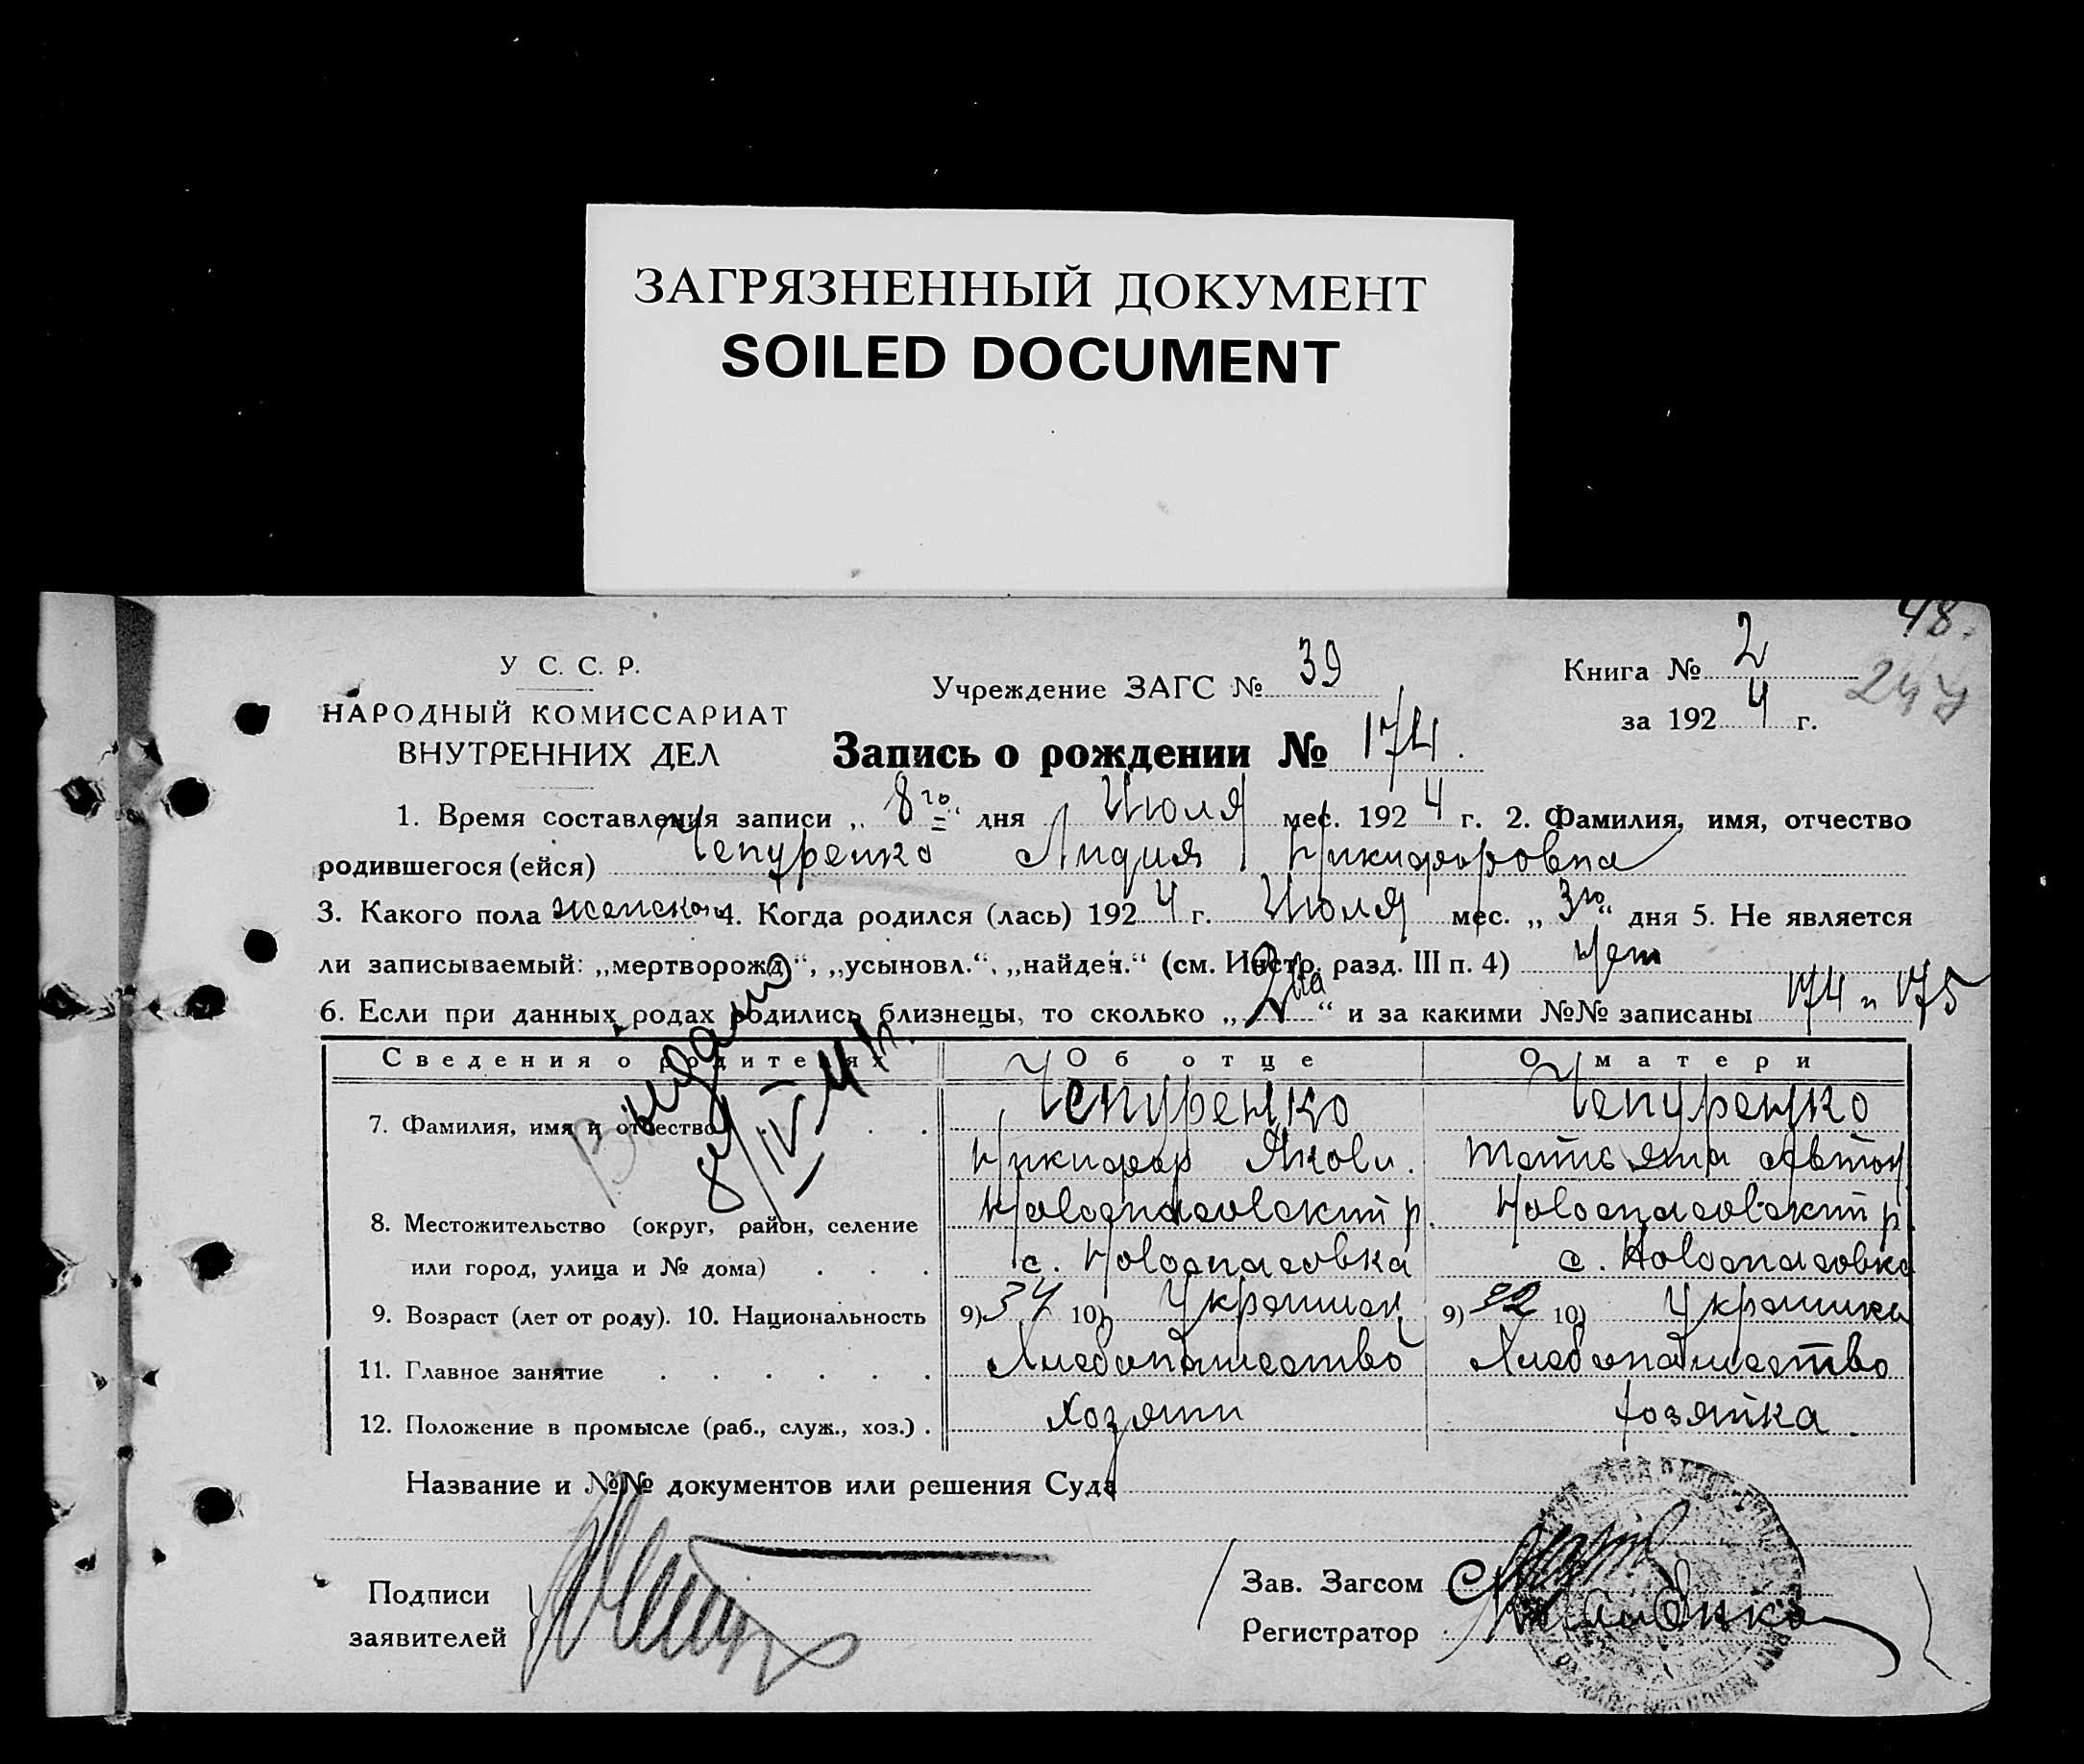 ЗАГРЯЗНЕННЫЙ ДОКУМЕНТ
SOILED DOCUMENT
48.
247
У С. С. Р.
НАРОДНЫЙ КОМИССАРИАТ
ВНУТРЕННИХ ДЕЛ
Учреждение ЗАГС № 39
Книга № 2
за 1924 г.
Запись о рождении № 174.
1. Время составления записи „8го“ дня Июля мес. 1924 г. 2. Фамилия, имя, отчество
родившегося (ейся) Чепуренко Лидия Никифоровна
3. Какого пола женско 4. Когда родился (лась) 1924 г. Июля мес. „3го“ дня 5. Не является
ли записываемый: „мертворожд“, „усыновл.“, „найден.“ (см. Инстр. разд. III п. 4) Нет
6. Если при данных родах родились близнецы, то сколько „2на“ и за какими №№ записаны 174 и 175
Сведения о родителях Об отце О матери
7. Фамилия, имя и отчество Чепуренко Чепуренко
Никифор Яковл. Татьяна Автон
8. Местожительство (округ, район, селение Новоспасовский р. Новоспасовский р.
или город, улица и № дома) с. Новоспасовка с. Новоспасовка
9. Возраст (лет от роду). 10. Национальность 9) 34 10) Украинец 9) 32 10) Украинка
11. Главное занятие Хлебопашество Хлебопашество
12. Положение в промысле (раб., служ., хоз.) Хозяин Хозяйка.
Выдано
8/IV-41г.
Название и №№ документов или решения Суда
Подписи
заявителей
Зав. Загсом
Регистратор